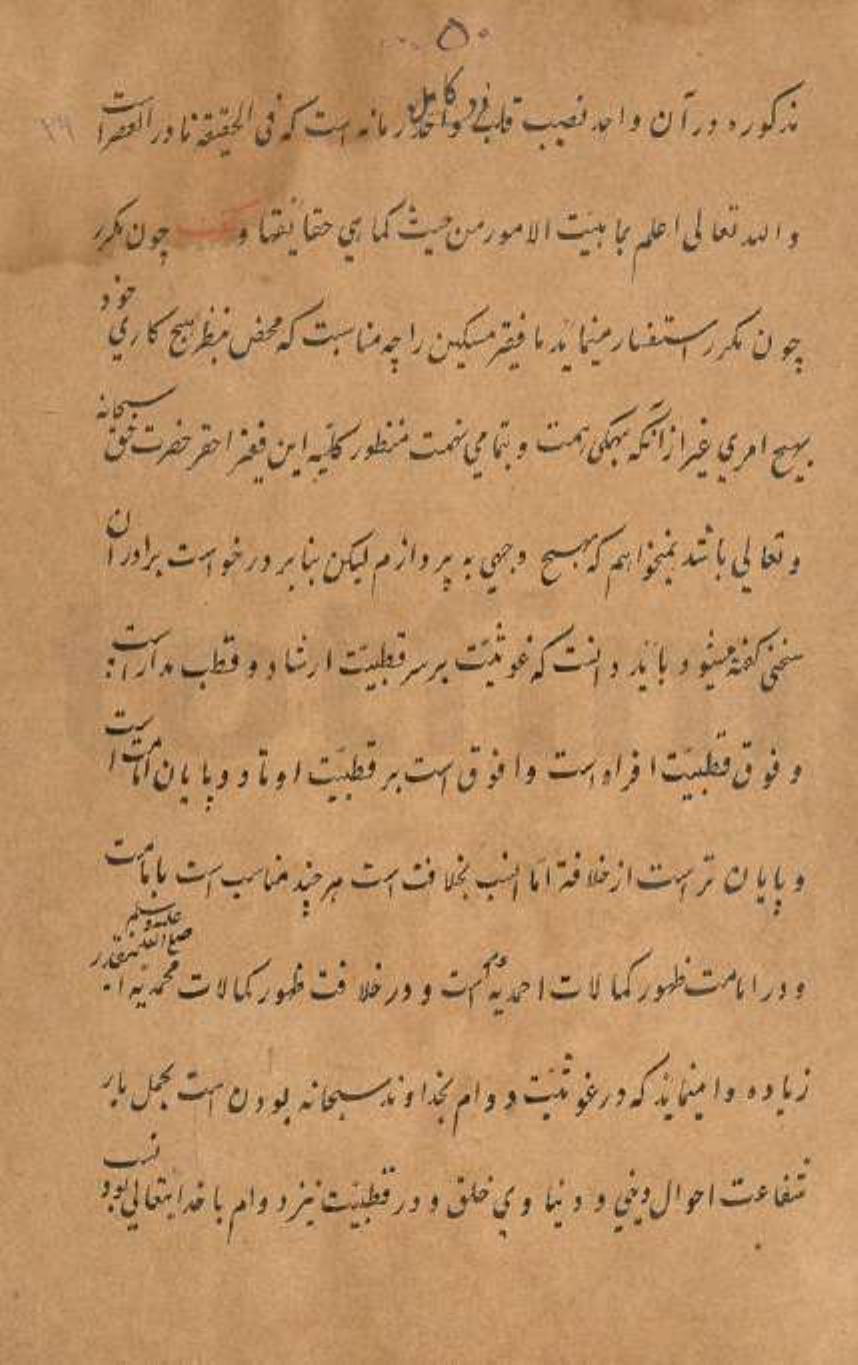 ۵۰
مذکوره در آن واحد نصیب قلب فرد کامل و واحد زمانه است که فی الحقیقة نادر العصر است
والله تعالی اعلم بماهیت الامور من حیث کماهی حقایقها و چون مکرر
چون مکرر استفسار مینماید ما فقیر مسکین را چه مناسبت که محض بنظر هیچ کاری خود
بهیچ امری غیر از آنکه بهمگی همت و بتمامی نهمت منظور کلیه این فقیر احقر حضرت حق سبحانه
و تعالی باشد نمیخواهم که بهیچ وجهی به پردازم لیکن بنابر درخواست برادران
سخنی گفته میشود باید دانست که غوثیت برسر قطبیت ارشاد و قطب مدار است
و فوق قطبیت افراد است و افوق است بر قطبیت اوتاد و پایان امامت است
و پایان تر است از خلافة اما انسب بخلافت است هر چند مناسب است بامامت
و در امامت ظهور کمالات احمدیه است و در خلافت ظهور کمالات محمدیه صلی الله علیه وسلم اینقدر
زیاده وا مینماید که در غوثیت دوام بخداوند سبحانه بودن است بحمل بار
شفاعت احوال دینی و دنیاوی خلق و در قطبیت نیز دوام با خدایتعالی بود